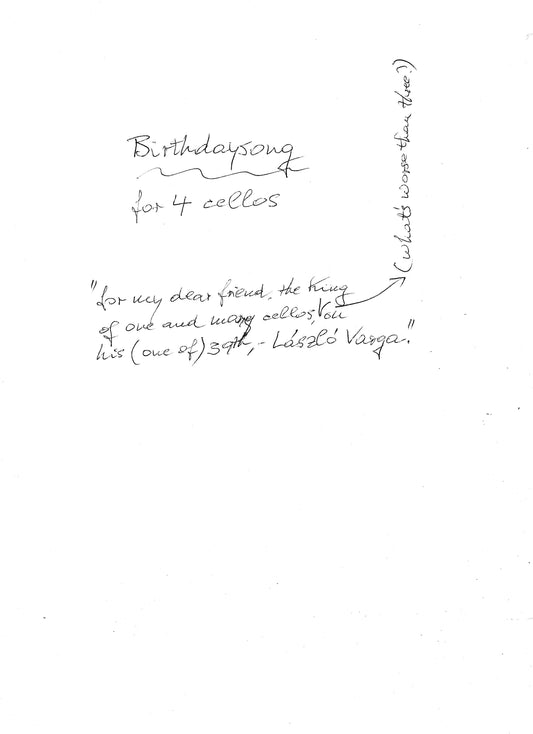 Birthdaysong
for 4 cellos
"for my dear friend, the King
of one and many cellos, on
his (one of) 39th, - László Varga."
(what's worse than three?)